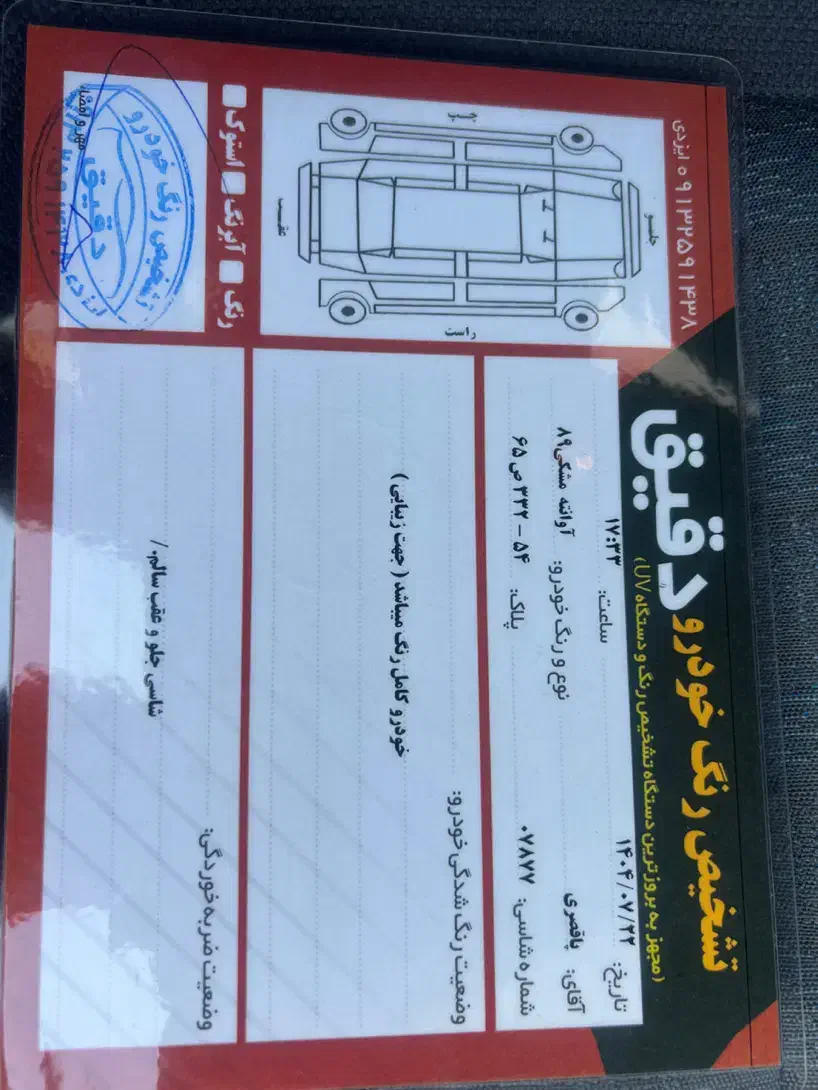 تشخیص رنگ خودرو دقیق
(مجهز به بروزترین دستگاه تشخیص رنگ و دستگاه UV)
۰۹۱۳۲۵۹۱۴۳۸ ایزدی
تاریخ: ۱۴۰۴/۰۷/۲۲ ساعت: ۱۷:۳۳
آقای: باقصری نوع و رنگ خودرو: آوانته مشکی ۸۹
شماره شاسی: ۰۷۸۷۷ پلاک: ۵۴ - ۳۳۲ ص ۶۵
جلو
راست
چپ
عقب
وضعیت رنگ شدگی خودرو:
خودرو کامل رنگ میباشد ( جهت زیبایی )
رنگ آبرنگ استوک
وضعیت ضربه خوردگی:
شاسی جلو و عقب سالم./
مهر و امضاء
تشخیص رنگ خودرو
دقیق